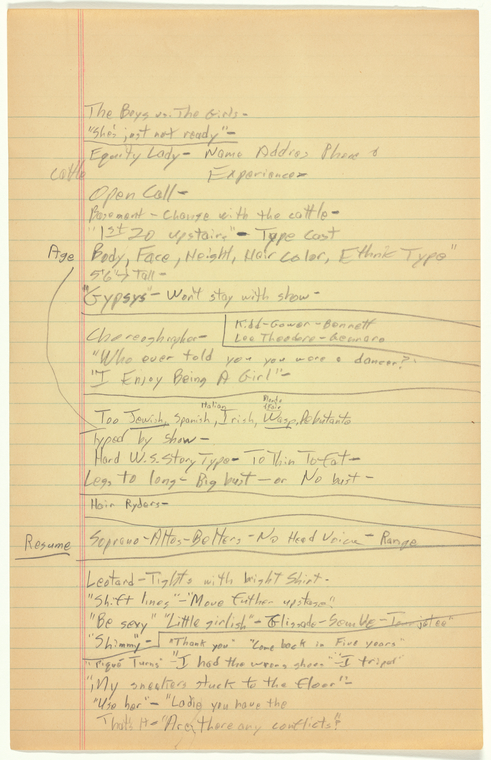 The Boys vs. The Girls-
"She's just not ready"-
Equity Lady- Name Addres Phone &
cattle
Experience-
Open Call-
Basement - Change with the cattle-
"1st 20 upstairs"- Type Cast
Age Body, Face, Height, Hair Color, Ethnic Type"
5'6"> Tall-
"Gypsys"- Won't stay with show-
Kidd-Gower-Bennett
Choreographer- Lee Theodore-Gennaro
"Who ever told you you were a dancer?"
"I Enjoy Being A Girl"-
Italian
Too Jewish, Spanish, Irish, Wasp, Debutante
Typed by Show-
Hard W.S. Story Type- To Thin To Fat-
Legs to long- Big bust- or No bust-
Hair Ryders-
Resume Soprano-Altos-Belters-No Head Voice- Range
Leotard-Tights with bright Shirt-
"Shift lines"-"Move futher upstage"
"Be sexy" "Little girlish"-Glissade-
"Shimmy"- "Thank you" "Come back in Five years"
"Piqué Turns" "I had the wrong shoes" "I tripped"
"My sneakers stuck to the floor"-
"Use her"- "Ladie you have the
That's It- "Are there any conflicts?"